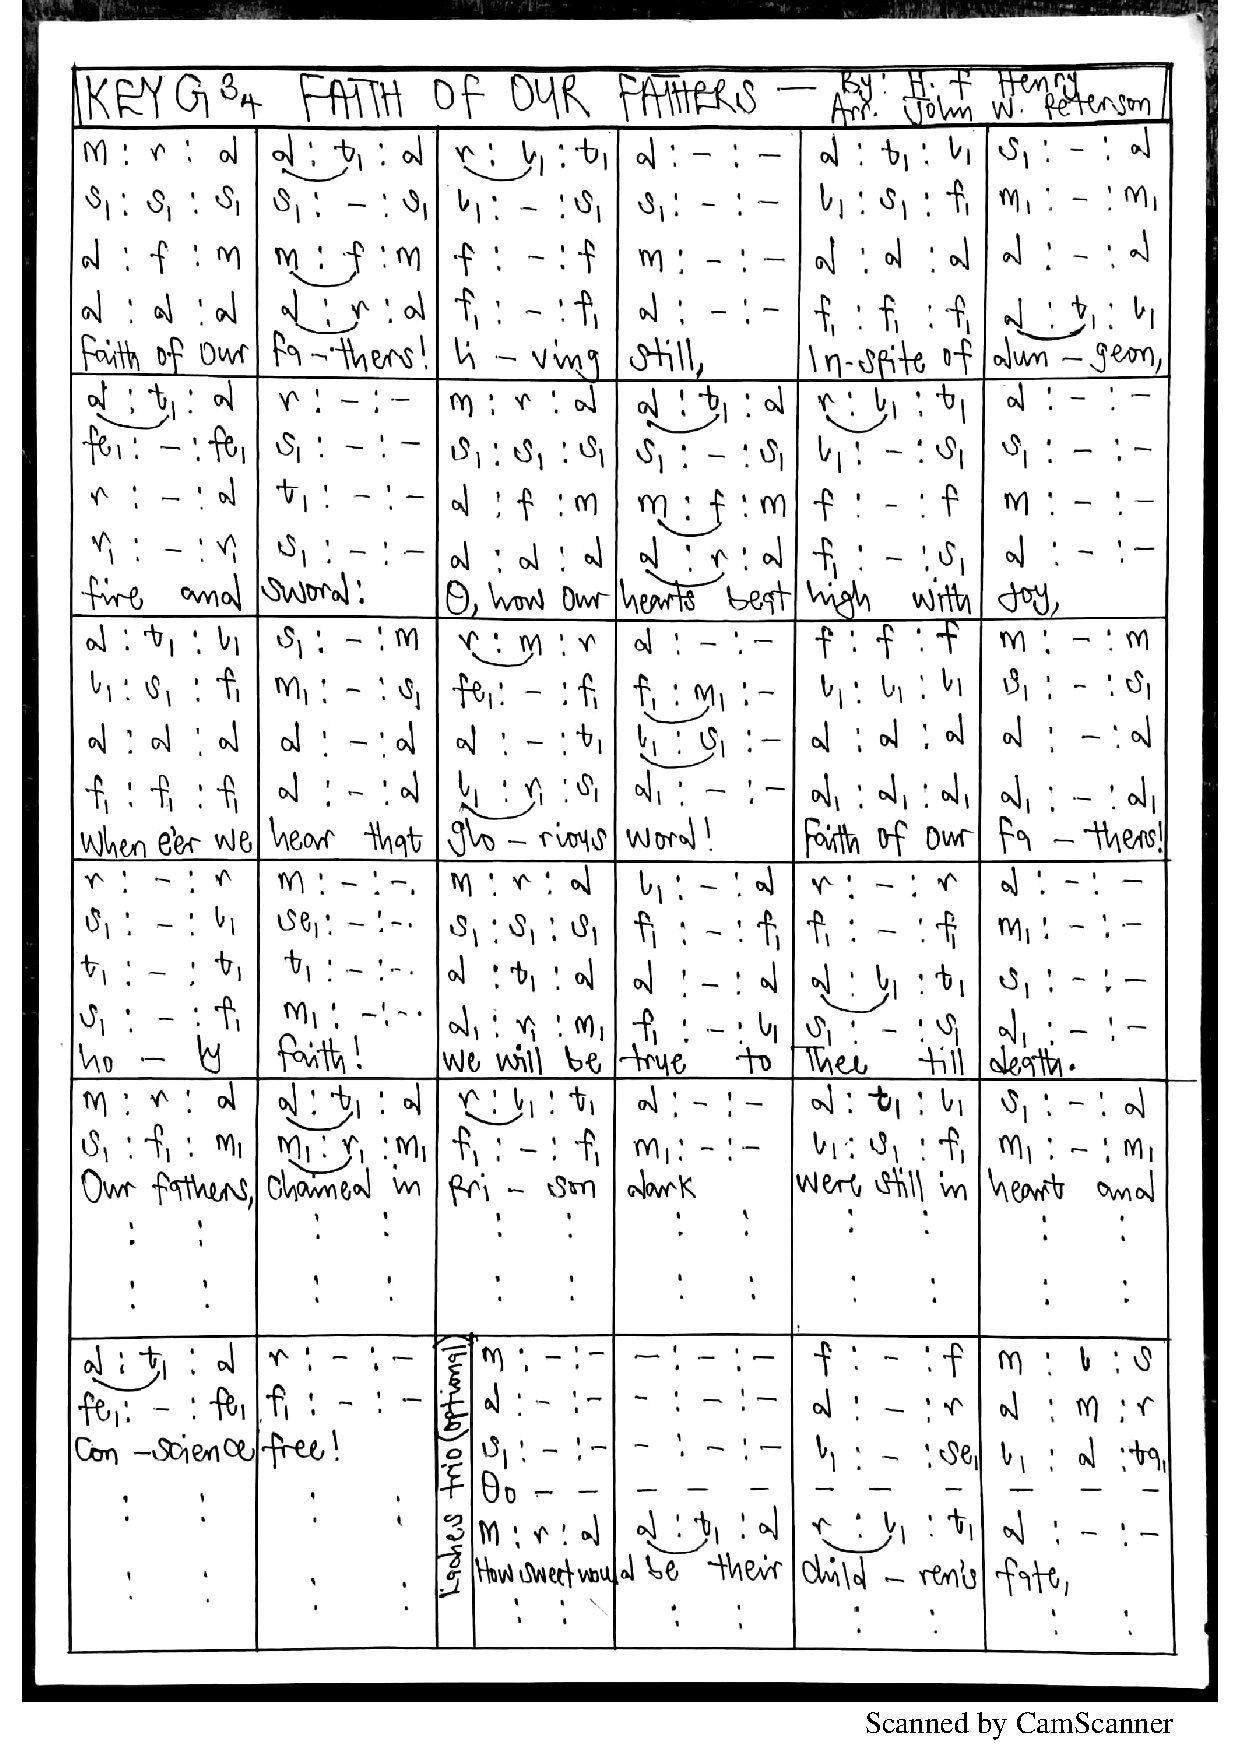 KEY G 3/4 FAITH OF OUR FATHERS — By: H. F Henry
Arr. John W. Peterson
m : r : d | d : t₁ : d | r : l₁ : t₁ | d : - : - | d : t₁ : l₁ | s₁ : - : d
s₁ : s₁ : s₁ | s₁ : - : s₁ | l₁ : - : s₁ | s₁ : - : - | l₁ : s₁ : f₁ | m₁ : - : m₁
d : f : m | m : f : m | f : - : f | m : - : - | d : d : d | d : - : d
d : d : d | d : r : d | f₁ : - : f₁ | d : - : - | f₁ : f₁ : f₁ | d : t₁ : l₁
Faith of Our | Fa-thers! | li-ving | still, | In-spite of | dun-geon,
d : t₁ : d | r : - : - | m : r : d | d : t₁ : d | r : l₁ : t₁ | d : - : -
fe₁ : - : fe₁ | s₁ : - : - | s₁ : s₁ : s₁ | s₁ : - : s₁ | l₁ : - : s₁ | s₁ : - : -
r : - : d | t₁ : - : - | d : f : m | m : f : m | f : - : f | m : - : -
r₁ : - : r₁ | s₁ : - : - | d : d : d | d : r : d | f₁ : - : s₁ | d : - : -
fire and | sword: | O, how Our | hearts beat | high with | Joy,
d : t₁ : l₁ | s₁ : - : m | r : m : r | d : - : - | f : f : f | m : - : m
l₁ : s₁ : f₁ | m₁ : - : s₁ | fe₁ : - : f₁ | f₁ : m₁ : - | l₁ : l₁ : l₁ | s₁ : - : s₁
d : d : d | d : - : d | d : - : t₁ | l₁ : s₁ : - | d : d : d | d : - : d
f₁ : f₁ : f₁ | d : - : d | l₁ : r₁ : s₁ | d₁ : - : - | d₁ : d₁ : d₁ | d₁ : - : d₁
When e'er we | hear that | glo-rious | word! | Faith of Our | Fa-thers!
r : - : r | m : - : -. | m : r : d | l₁ : - : d | r : - : r | d : - : -
s₁ : - : l₁ | se₁ : - : -. | s₁ : s₁ : s₁ | f₁ : - : f₁ | f₁ : - : f₁ | m₁ : - : -
t₁ : - : t₁ | t₁ : - : -. | d : t₁ : d | d : - : d | d : l₁ : t₁ | s₁ : - : -
s₁ : - : f₁ | m₁ : - : -. | d₁ : r₁ : m₁ | f₁ : - : l₁ | s₁ : - : s₁ | d₁ : - : -
ho-ly | faith! | We will be | true to | Thee till | death.
m : r : d | d : t₁ : d | r : l₁ : t₁ | d : - : - | d : t₁ : l₁ | s₁ : - : d
s₁ : f₁ : m₁ | m₁ : r₁ : m₁ | f₁ : - : f₁ | m₁ : - : - | l₁ : s₁ : f₁ | m₁ : - : m₁
Our fathers, | chained in | Pri-son | dark | were still in | heart and
: : | : : | : : | : : | : : | : :
: : | : : | : : | : : | : : | : :
d : t₁ : d | r : - : - | Ladies trio (optional) | m : - : - | - : - : - | f : - : f | m : l : s
fe₁ : - : fe₁ | f₁ : - : - | d : - : - | - : - : - | d : - : r | d : m : r
Con-science | free! | s₁ : - : - | - : - : - | l₁ : - : se₁ | l₁ : d : ta₁
: : | : : | Oo - - | - - - | - - - | - - -
m : r : d | d : t₁ : d | r : l₁ : t₁ | d : - : -
: : | : : | How sweet would | be their | child-ren's | fate,
: : | : : | : : | : :
Scanned by CamScanner